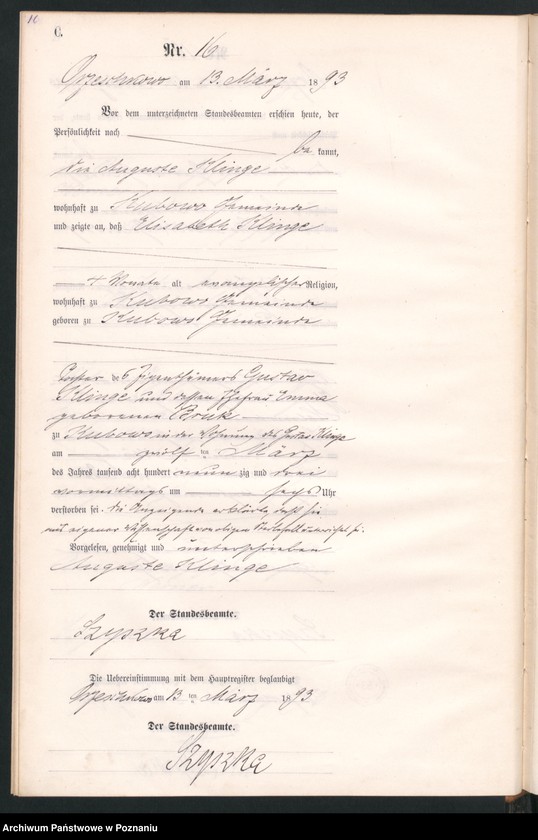 16
C.
Nr. 16
Orzeschkowo am 13. März 1893
Vor dem unterzeichneten Standesbeamten erschien heute, der
Persönlichkeit nach
be kannt,
die Auguste Klinge
wohnhaft zu Kubowo Gemeinde
und zeigte an, daß Elisabeth Klinge
4 Monate alt evangelischer Religion,
wohnhaft zu Kubowo Gemeinde
geboren zu Kubowo Gemeinde
Tochter des Eigenthümers Gustav
Klinge und dessen Ehefrau Emma
geborenen
zu Kubowo in der Wohnung des Gustav Klinge
am zwölf ten März
des Jahres tausend acht hundert neun zig und drei
vormittags um sechs Uhr
verstorben sei. Die Anzeigende erklärte daß sie
aus eigener Wissenschaft von obigem Sterbefall unterrichtet sei.
Vorgelesen, genehmigt und unterschrieben
Auguste Klinge
Der Standesbeamte.
Szyszka
Die Uebereinstimmung mit dem Hauptregister beglaubigt
Orzeschkowo am 13 ten März 1893
Der Standesbeamte.
Szyszka
Archiwum Państwowe w Poznaniu